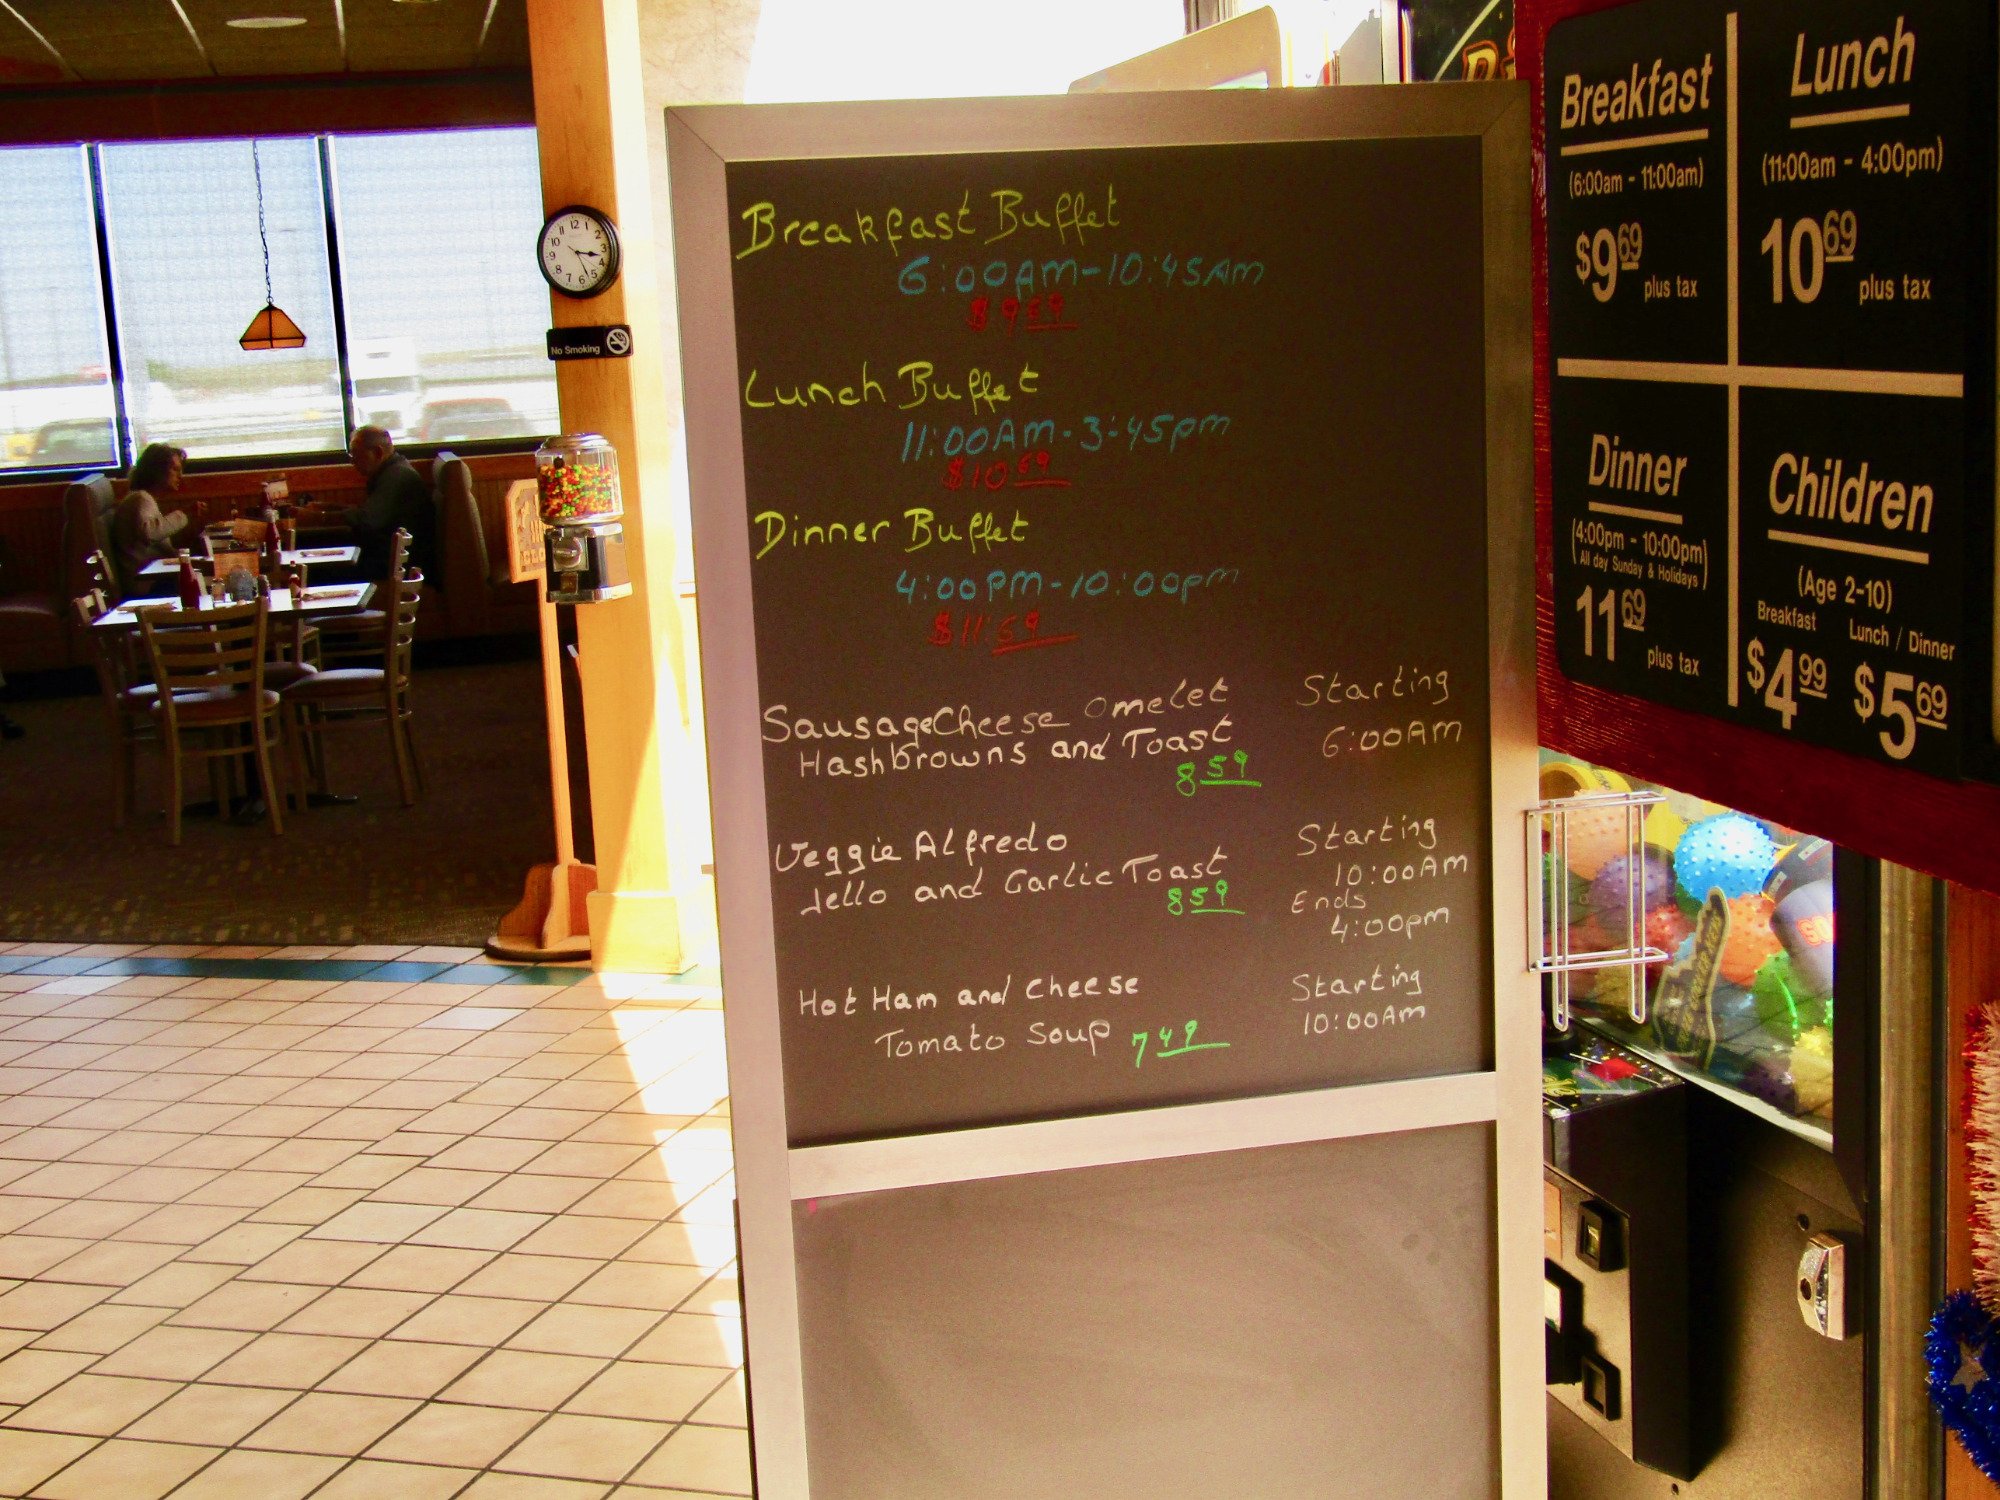 No Smoking
Breakfast Buffet
6:00AM-10:45AM
$9 69
Lunch Buffet
11:00AM-3:45pm
$10.69
Dinner Buffet
4:00PM-10:00pm
$11.69
Sausage Cheese Omelet
Hashbrowns and Toast
8 59
Starting
6:00AM
Veggie Alfredo
Jello and Garlic Toast
8 59
Starting
10:00AM
Ends
4:00pm
Hot Ham and Cheese
Tomato Soup 7 49
Starting
10:00AM
Breakfast
(6:00am - 11:00am)
$9 69 plus tax
Lunch
(11:00am - 4:00pm)
10 69 plus tax
Dinner
(4:00pm - 10:00pm)
All day Sunday & Holidays
11 69 plus tax
Children
(Age 2-10)
Breakfast
$4 99
Lunch / Dinner
$5 69